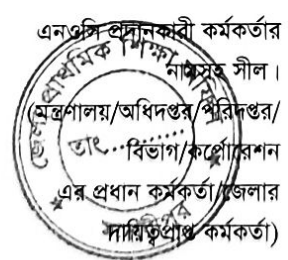 এনওসি প্রদানকারী কর্মকর্তার
নামসহ সীল।
(মন্ত্রণালয়/অধিদপ্তর/পরিদপ্তর/
বিভাগ/কর্পোরেশন
এর প্রধান কর্মকর্তা/জেলার
দায়িত্বপ্রাপ্ত কর্মকর্তা)
জেলা প্রাথমিক শিক্ষা
তাং..........